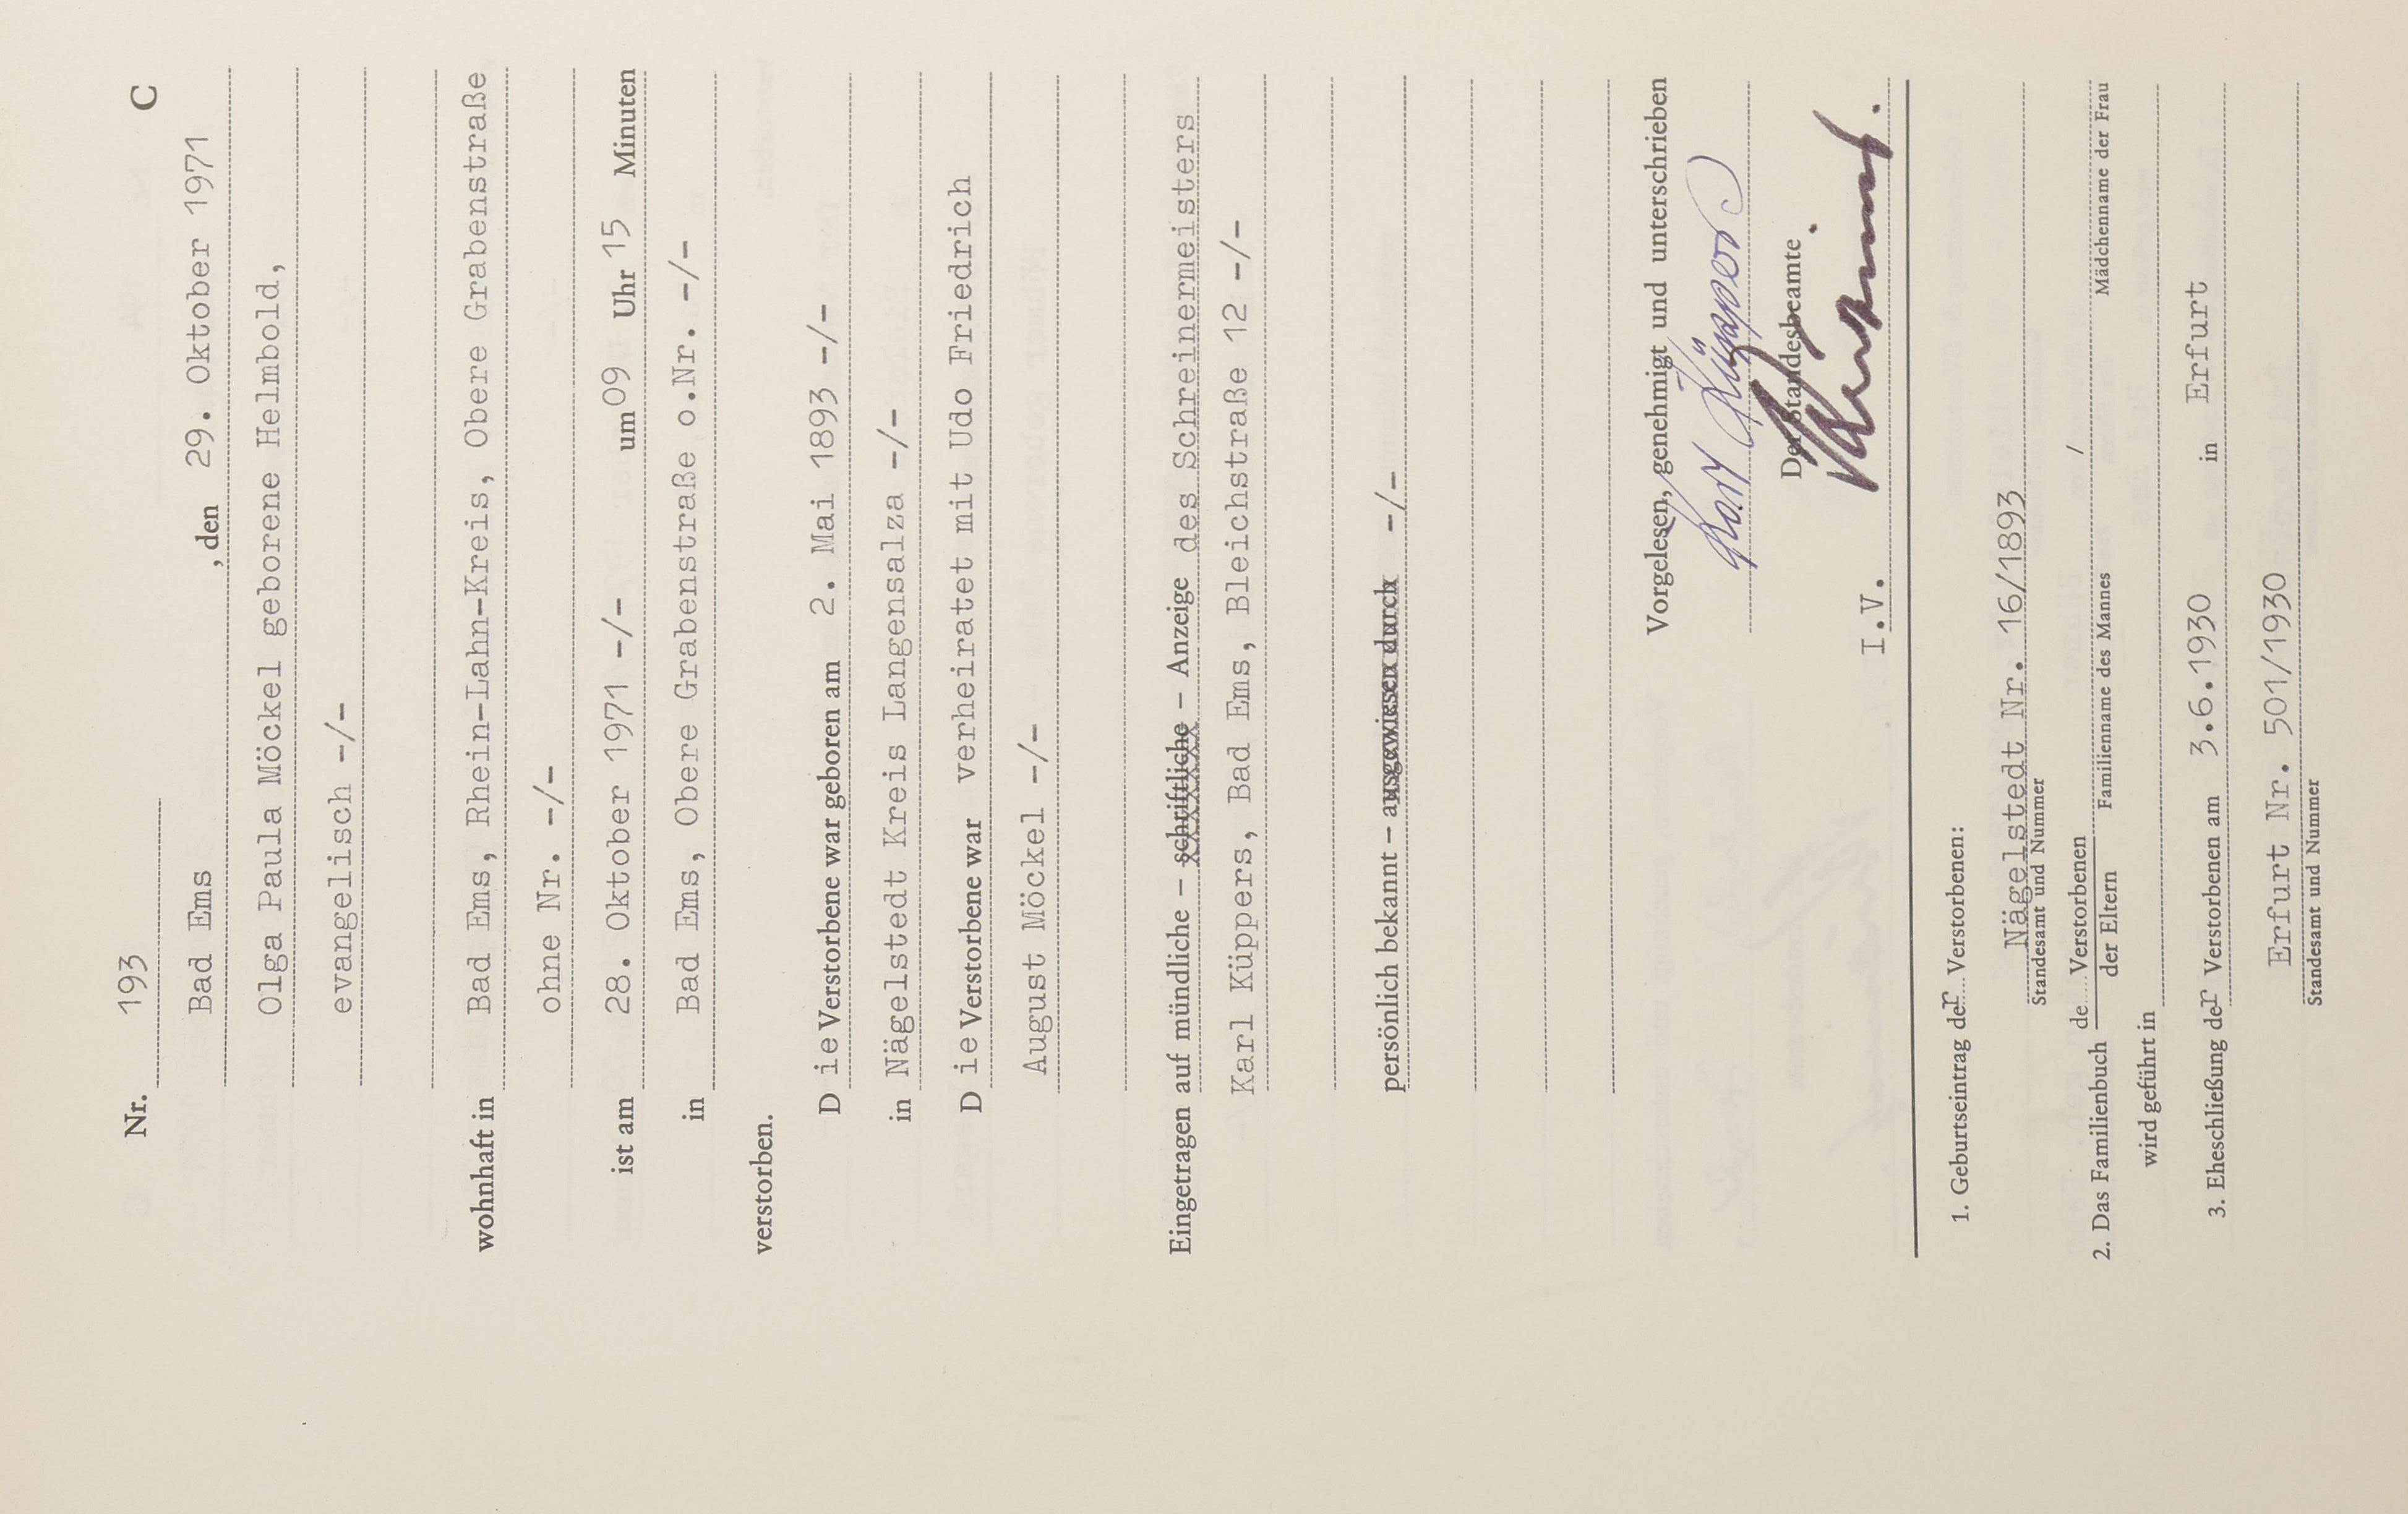 Nr. 193 C
Bad Ems , den 29. Oktober 1971
Olga Paula Möckel geborene Helmbold,
evangelisch -/-
wohnhaft in Bad Ems, Rhein-Lahn-Kreis, Obere Grabenstraße
ohne Nr. -/-
ist am 28. Oktober 1971 -/- um 09 Uhr 15 Minuten
in Bad Ems, Obere Grabenstraße o.Nr. -/-
verstorben.
D ie Verstorbene war geboren am 2. Mai 1893 -/-
in Nägelstedt Kreis Langensalza -/-
D ie Verstorbene war verheiratet mit Udo Friedrich
August Möckel -/-
Eingetragen auf mündliche - schriftliche - Anzeige des Schreinermeisters
Karl Küppers, Bad Ems, Bleichstraße 12 -/-
persönlich bekannt - ausgewiesen durch -/-
Vorgelesen, genehmigt und unterschrieben
Karl Küppers
Der Standesbeamte
I.V.
1. Geburtseintrag der Verstorbenen:
Nägelstedt Nr. 16/1893
Standesamt und Nummer
2. Das Familienbuch de Verstorbenen /
der Eltern Familienname des Mannes Mädchenname der Frau
wird geführt in
3. Eheschließung der Verstorbenen am 3.6.1930 in Erfurt
Erfurt Nr. 501/1930
Standesamt und Nummer